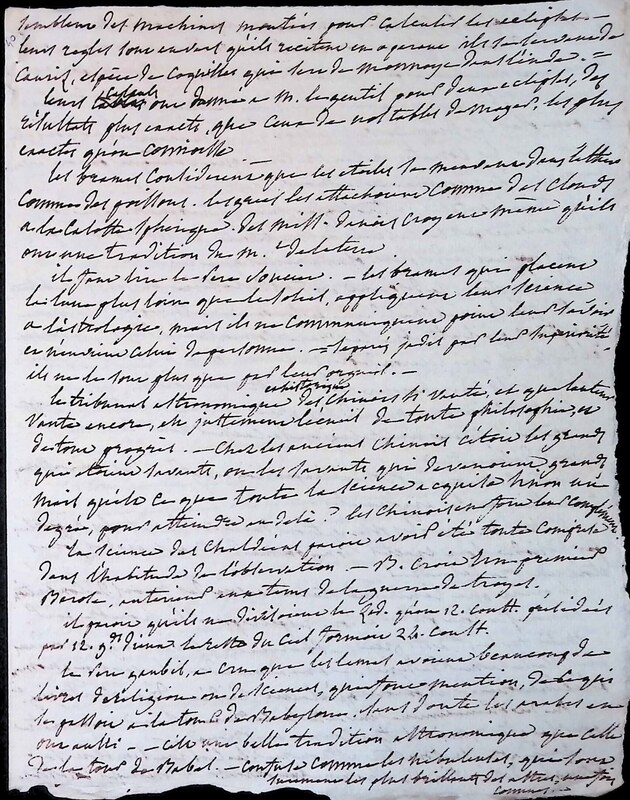 semblent des machines montées pour calculer les eclipses —
leurs regles sont en vers qu'ils recitent en operant ils se servent de
cauris, espèce de coquilles qui sert de monnoye dans l'inde. =
leurs calculs ont donné a M. le gentil pour deux eclipses, des
résultats plus exacts, que ceux de nos tables de mayer, les plus
exactes qu'on connoisse
les brames considerent que les etoiles se meuvent dans l'ether
comme des poissons. les grecs les attachoient comme des clouds
a la calotte spherique des miss. danois croyent même qu'ils
ont une tradition du m.t de la terre
il faut lire le Pere Souciet. — les brames qui placent
la lune plus loin que le soleil, appliquent leur science
a l'astrologie, mais ils ne communiquent point leur savoir
et n'envient celui de personne. — separés jadis par leur superiorité
ils ne le sont plus que par leur orgueil —
le tribunal astronomique et historique des chinois si vanté, et que l'auteur
vante encore, est justement l'ecueil de toute philosophie, et
de tout progrès. — chez les anciens chinois c'etoit les grands
qui etoient savants, ou les savants qui devenoient grands
mais qu'est ce que toute la science acquise
degré, pour atteindre au delà ? les chinois en font leur complement.
la science des chaldéens paroit avoir été toute comprise
dans l'habitude de l'observation — B. croit un premier
Belole, anterieur aux tems de la guerre de troyes.
il paroit qu'ils ne divisoient le Zod. qu'en 12. const. présidées
par 12. g.ds dieux le reste du ciel formoit 24. const.
le Pere gaubil, a cru que les lamas avoient beaucoup de
livres de religion ou de sciences, qui font mention, de ce qui
se passoit a la tour de Babylone. sans doute les arabes en
ont aussi — — c'est une belle tradition astronomique que celle
de la tour de Babel. — confuse comme les nebuleuses, qui sont
surement les plus brillants des astres,
connus. —